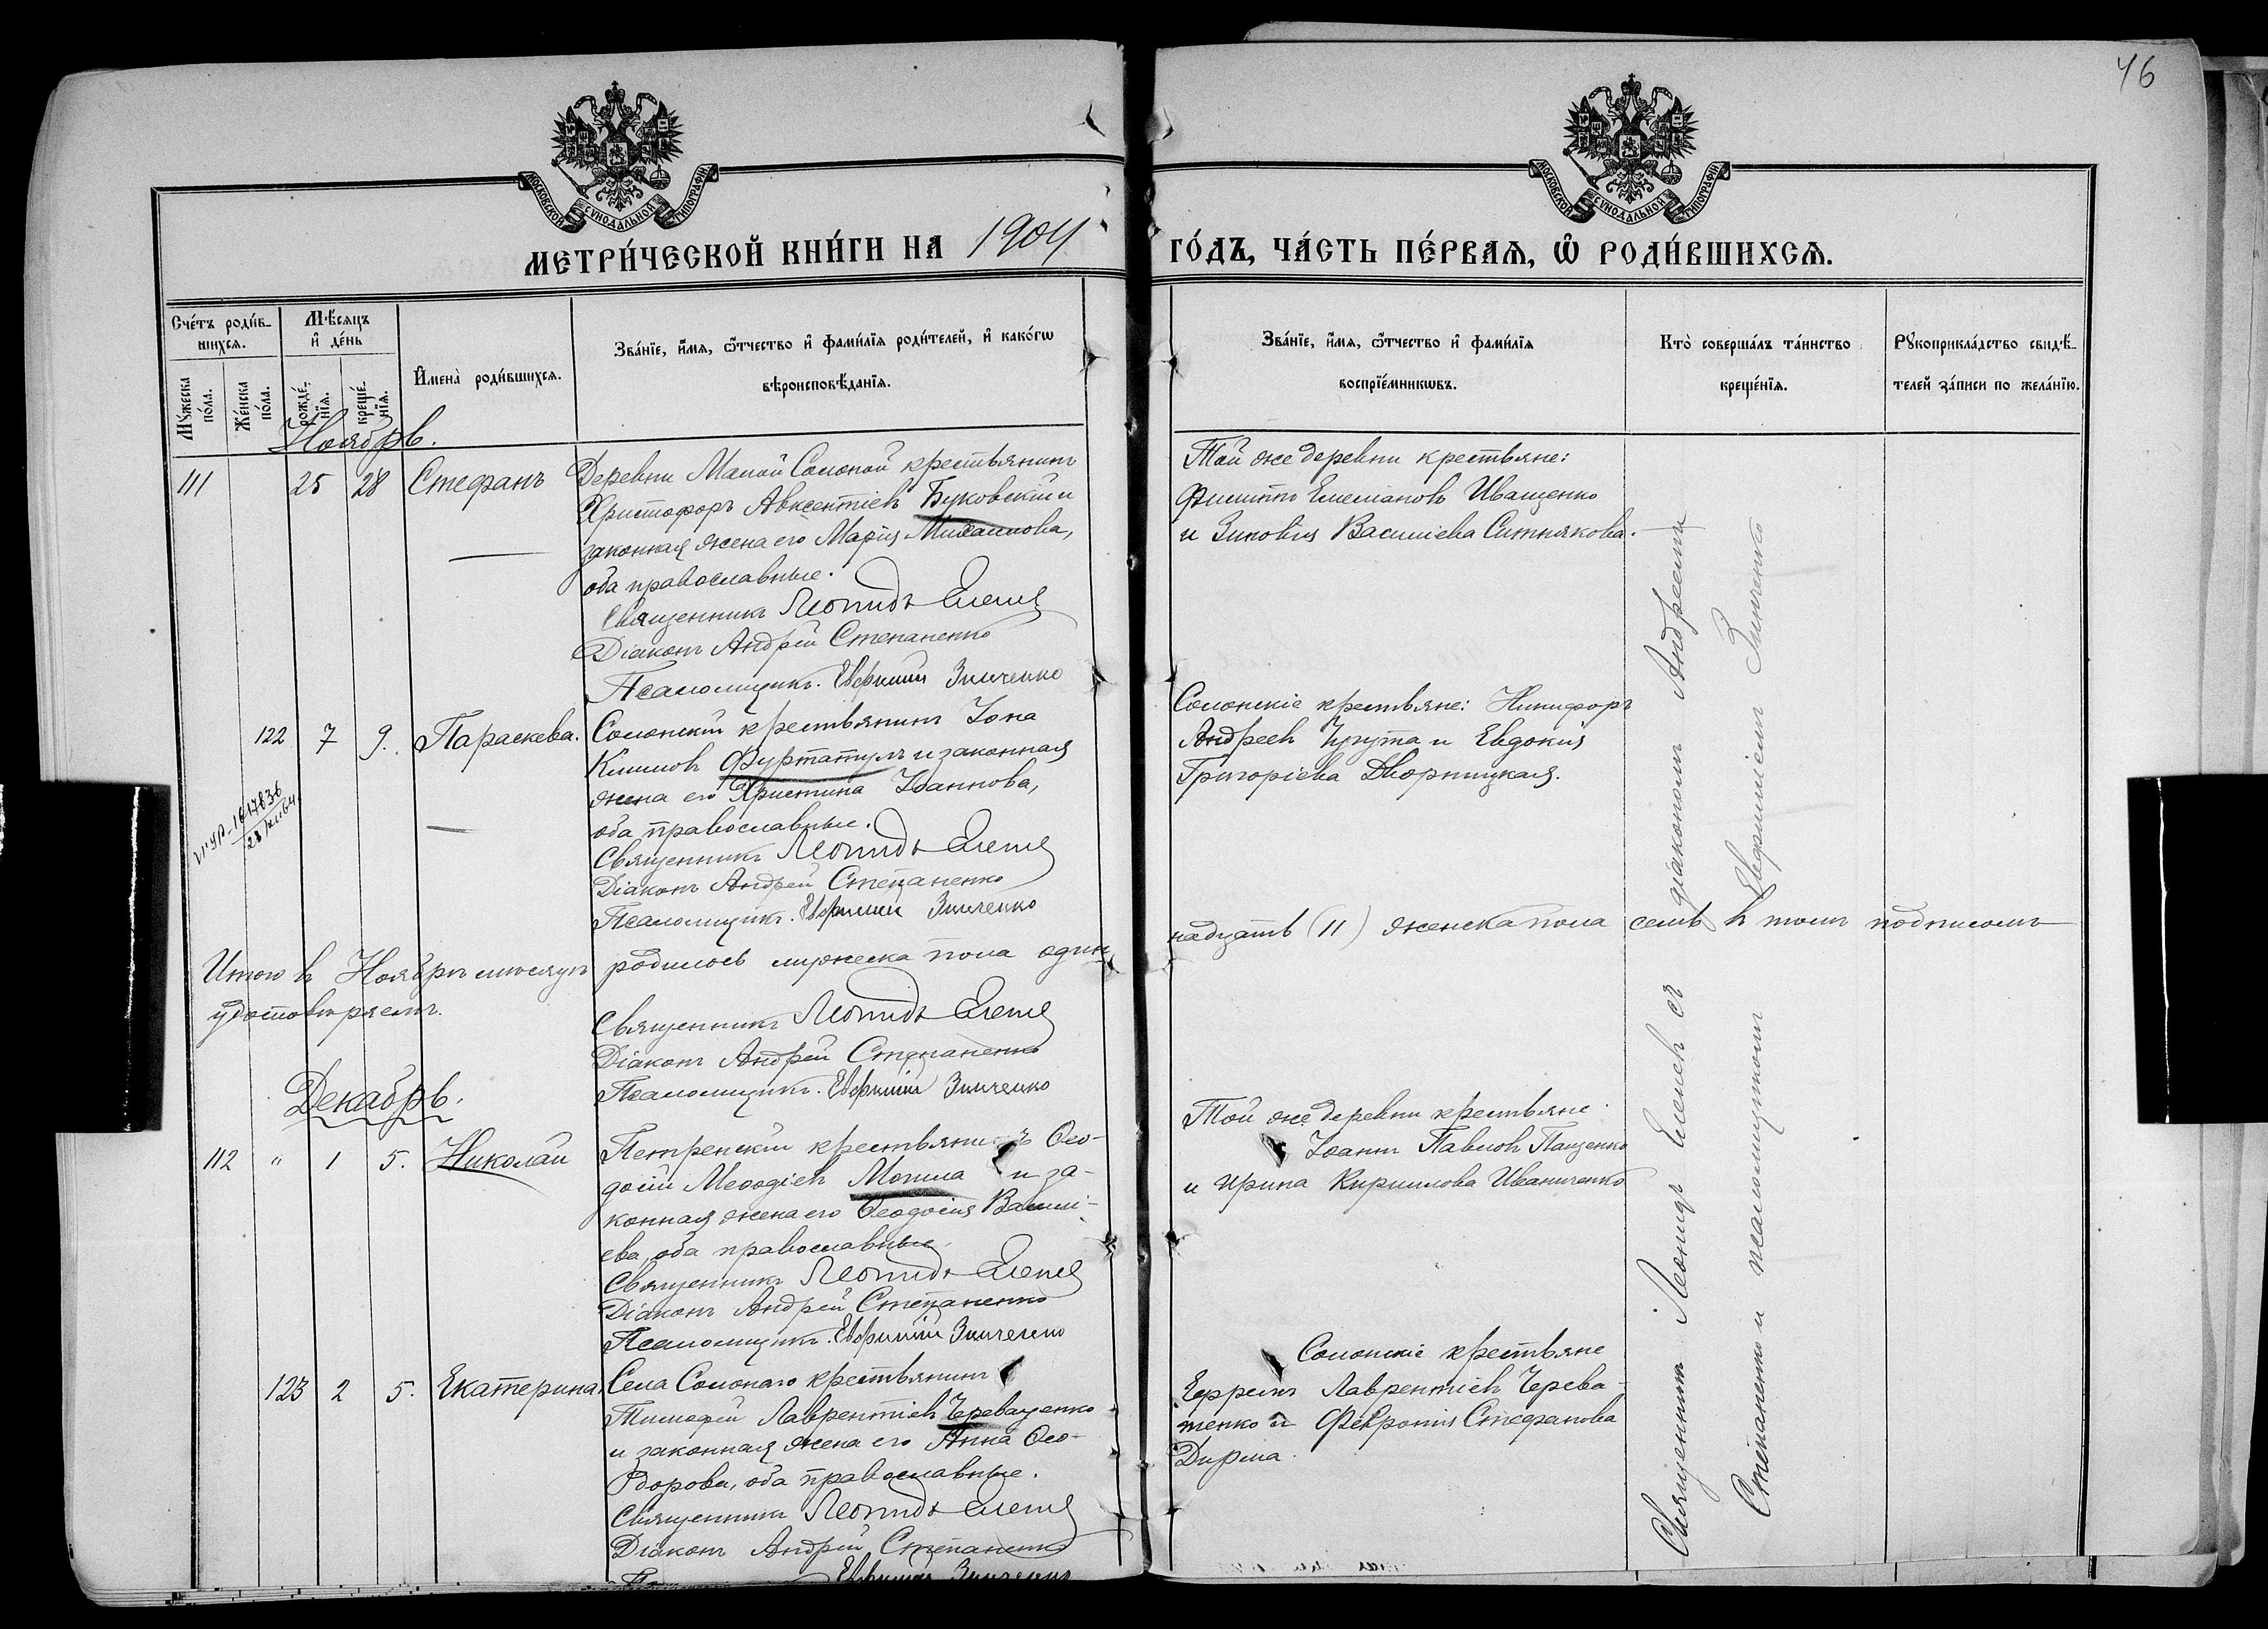 46
МОСКОВСКОЙ СѴНОДАЛЬНОЙ ТИПОГРАФІИ
МОСКОВСКОЙ СѴНОДАЛЬНОЙ ТИПОГРАФІИ
МЕТРИ́ЧЕСКОЙ КНИ́ГИ НА 1904
ГО́ДЪ, ЧА́СТЬ ПЕ́РВАѦ, Ѡ҆ РОДИ́ВШИХСѦ.
Сче́тъ роди́в-
шихсѧ.
Мѣ́сѧцъ
и҆ де́нь
Мꙋ́жеска
по́ла.
Же́нска
по́ла.
рожде́-
нїѧ.
креще́-
нїѧ.
И҆мена̀ роди́вшихсѧ.
Зва́нїе, и҆́мѧ, ѻ҆́тчество и҆ фами́лїѧ роди́телей, и҆ како́гѡ
вѣроисповѣ́данїѧ.
Зва́нїе, и҆́мѧ, ѻ҆́тчество и҆ фами́лїѧ
воспрїе́мникѡвъ.
Кто̀ соверша́лъ та́инство
креще́нїѧ.
Рꙋкоприкла́дство свидѣ́-
телей за́писи по жела́нїю.
Ноябрь.
111 25 28 Стефанъ
Деревни Малой Солоной крестьянинъ
Христофоръ Авксентіевъ Буковскій и
законная жена его Марія Михаилова,
оба православные.
Священникъ Леонидъ
Діаконъ Андрей Степаненко
Псаломщикъ. Евфимій Зинченко
Той же деревни крестьяне:
Филиппъ Емеліановъ Иващенко
и Зиновія Василіева Ситнякова.
122 7 9. Параскева.
Солонскій крестьянинъ Іона
Климовъ Фуртатулъ и законная
жена его Христина Іоаннова,
оба православные.
Священникъ Леонидъ
Діаконъ Андрей Степаненко
Псаломщикъ. Евфимій Зинченко
Солонскіе крестьяне: Никифоръ
Андреевъ Чугута и Евдокія
Григоріева Дворницкая.
Итого въ Ноябрѣ мѣсяцѣ родилось мужеска пола один
надцать (11) женска пола семь въ томъ подписомъ
удостовѣряемъ.
Священникъ Леонидъ
Діаконъ Андрей Степаненко
Псаломщикъ. Евфимій Зинченко
Декабрь.
112 " 1 5. Николай
Петренскій крестьянинъ Ѳео-
досій Меѳодіевъ Могила и за-
конная жена его Ѳеодосія Василі-
ева, оба православные
Священникъ Леонидъ
Діаконъ Андрей Степаненко
Псаломщикъ. Евфимій Зинченко
Той же деревни крестьяне
Іоаннъ Павловъ Пащенко
и Ирина Кириллова Иваниченко
123 2 5. Екатерина
Села Солонаго крестьянинъ
Тимофей Лаврентіевъ Череващенко
и законная жена его Анна Ѳео-
дорова, оба православные.
Священникъ Леонидъ
Діаконъ Андрей Степаненко
Евфимій Зинченко
Солонскіе крестьяне
Ефремъ Лаврентіевъ Черева-
тенко и Февронія Стефанова
Дирма.
Священникъ Леонидъ съ діакономъ Андреемъ
Степаненко и псаломщикомъ Евфиміемъ Зинченко